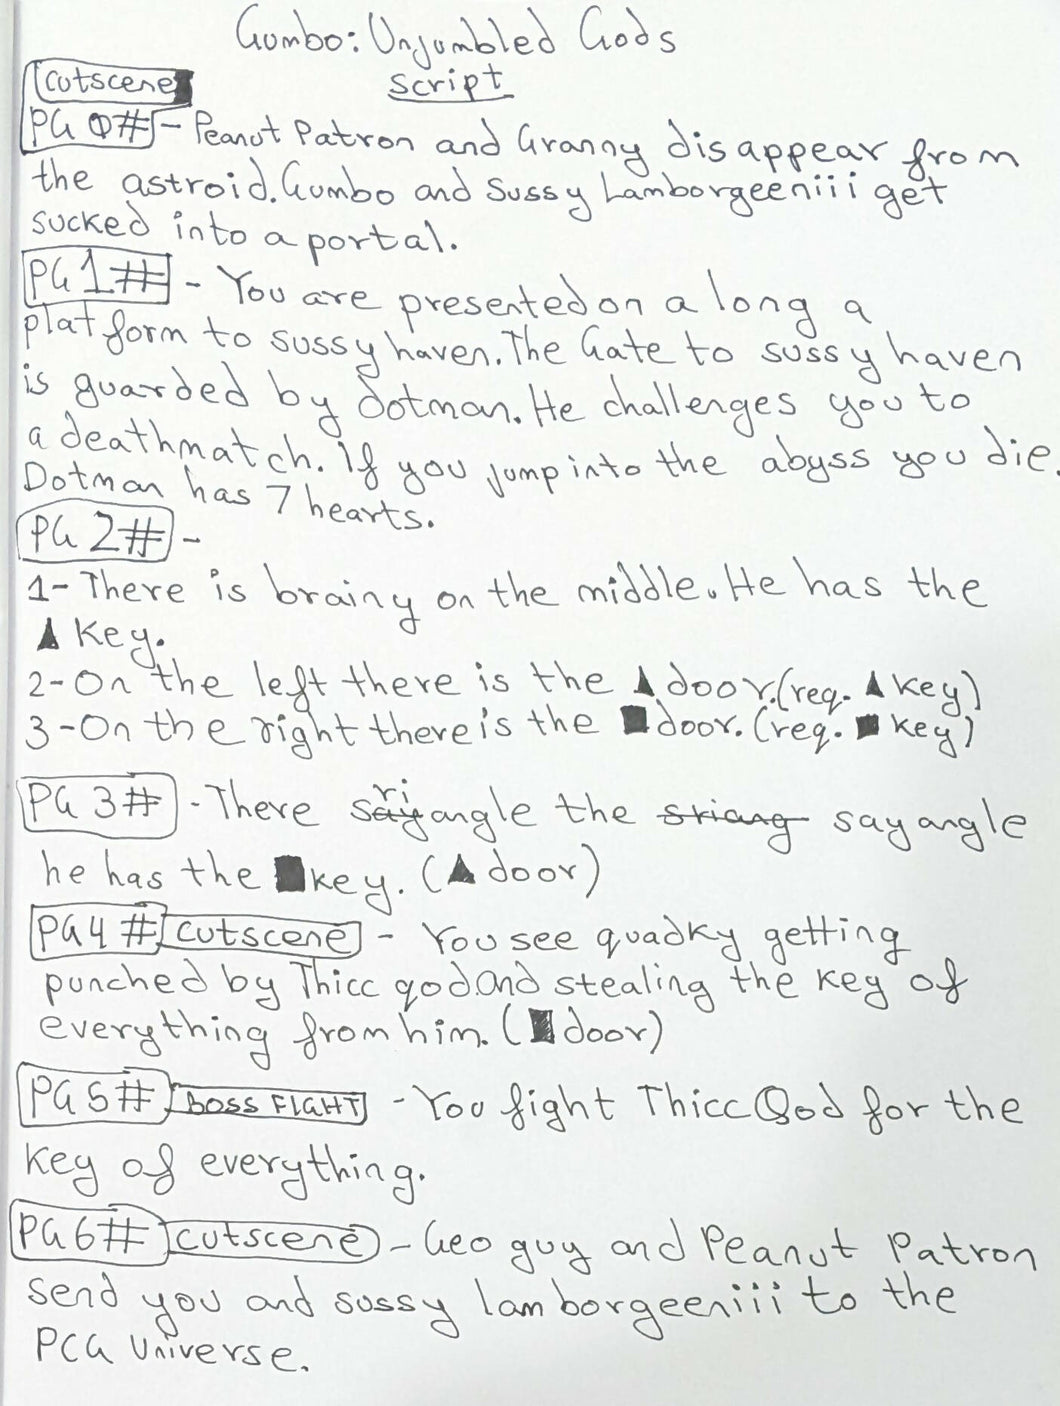 Gumbo: Unjumbled Gods
script
cutscene
PG 0# - Peanut Patron and Granny disappear from
the astroid. Gumbo and Sussy Lamborgeeniii get
sucked into a portal.
PG 1# - You are presented on a long a
platform to sussy haven. The Gate to sussy haven
is guarded by dotman. He challenges you to
a deathmatch. If you jump into the abyss you die.
Dotman has 7 hearts.
PG 2# -
1- There is brainy on the middle. He has the
▲ key.
2- On the left there is the ▲ door. (req. ▲ key)
3- On the right there is the ■ door. (req. ■ key)
PG 3# - There sriangle the sayangle
he has the ■ key. (▲ door)
PG 4# cutscene - You see quadky getting
punched by Thicc qod and stealing the key of
everything from him. (■ door)
PG 5# BOSS FIGHT - You fight Thicc Qod for the
key of everything.
PG 6# cutscene - Geo guy and Peanut Patron
send you and sussy lamborgeeniii to the
PCG Universe.